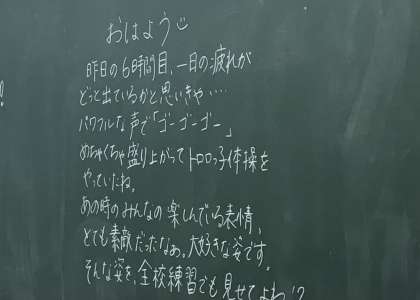 おはよう
昨日の6時間目、一日の疲れが
どっと出ているかと思いきや・・・・
パワフルな声で「ゴーゴーゴー」
めちゃくちゃ盛り上がってトロロっ子体操を
やっていたね。
あの時のみんなの楽しんでいる表情、
とても素敵だったなぁ。大好きな姿です。
そんな姿を、全校練習でも見せてよね!?
!!